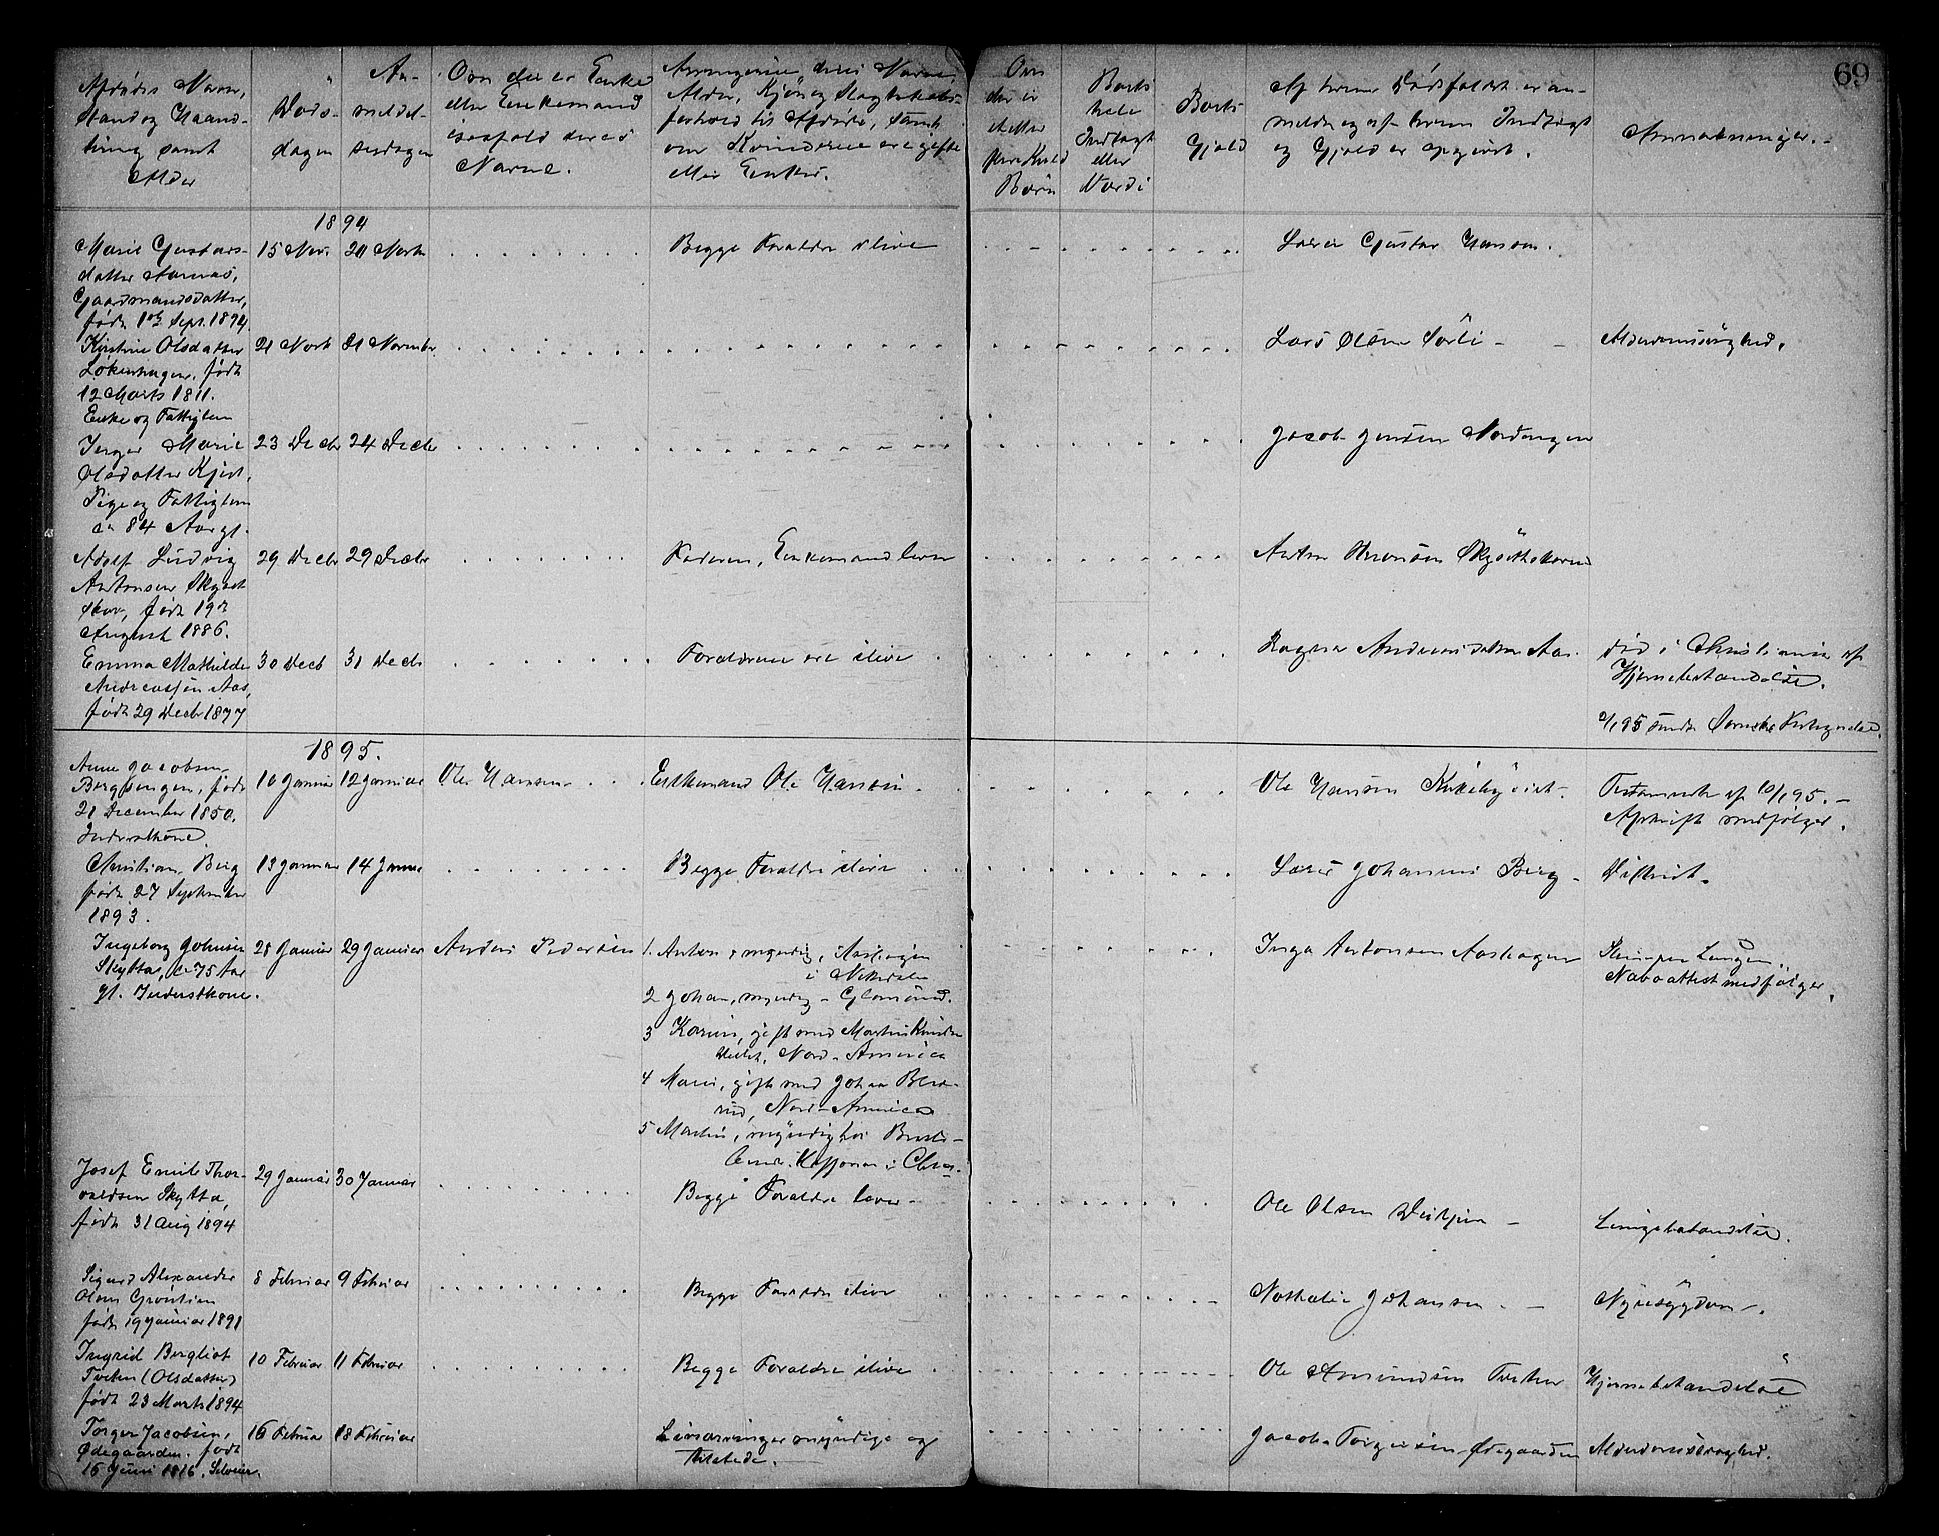 69
Afdødes Navn,
Stand og Haand-
tering samt
Alder
Døds-
dagen
An-
meldel-
sesdagen
Om der er Enke
eller Enkemand
isaafald deres
Navne.
Arvingerne, deres Navne,
Alder, Kjøn og Slægtskabs-
forhold til Afdøde, samt
om Kvinderne ere gifte
eller Enker.
Om
der er
efter
flere Kuld
Børn
Boets
hele
Indtægt
eller
Værdi
Boets
Gjæld
Af hvem Dødsfaldet er an-
meldt og af hvem Indtægt
og Gjæld er opgivet.
Anmærkninger.
1894
Marie Gustavs-
datter Aarnæs,
Gaardmandsdatter,
født 1ste Sept. 1894
15 Nov. 20 Novb
Begge Forældre ilive
Lærer Gustav Hansen.
Kirstine Olsdatter
Løkenhagen, født
12 Marts 1811.
Enke og Fattiglem
21 Novb 21 November
Lars Olsen Sørli
Alderdomssvaghed.
Inger Marie
Olsdatter Kjist,
Pige og Fattiglem
ca 84 Aar gl.
23 Decbr 24 Decbr
Jacob Jensen Nordengen
Adolf Ludvig
Antonsen Skyset
skov, født 19de
August 1886.
29 Decbr 29 Decbr
Faderen, Enkemand lever
Anton Skysetskoven
Emma Mathilde
Andreassen Aas,
født 29 Decbr 1877
30 Decb 31 Decb
Forældrene ere ilive
Ragna Andreasdatter Aas.
død i Christiania af
Hjernebetændelse.
1895.
Anne Jacobsen
Bergsengen, født
21 December 1850.
Inderstkone
10 Januar 12 Januar
Ole Hansen
Enkemand Ole Hansen
Ole Hansen Kirkebyeiet.
Testamente af 10/1 95.
Afskrift medfølger.
Christian Berg
født 27 September
1893.
13 Januar 14 Januar
Begge Forældre ilive
Lærer Johannes Berg
Difterit.
Ingeborg Johnsen
Skytta, ca 75 Aar
gl. Inderstkone.
28 Januar 29 Januar
Anders Pedersen
1. Anton, myndig, Aashagen
i Nittedalen
2 Johan, myndig
3 Karen, gift med Martin
Nord-America
4 Maren, gift med Johan
Nord-America
5 Martin, myndig hos
Inga Antonsen Aashagen
Naboattest medfølger.
Josef Emil Thor-
valdsen Skytta,
født 31 Aug 1894
29 Januar 30 Januar
Begge Forældre lever
Ole Olsen
Lungebetændelse.
Sigurd Alexander
Olsen Grønlien
født 19 Januar 1891
8 Februar 9 Februar
Begge Forældre ilive
Nathalie Johansen.
Nyresygdom.
Ingrid Bergliot
Tveten (Olsdatter)
født 23 Marts 1894
10 Februar 11 Februar
Begge Forældre ilive
Ole Amundsen Tveten
Hjernebetændelse
Torger Jacobsen,
Ødegaarden. født
15 Juni 1816. Selveier.
16 Februar 18 Februar
Livsarvinger myndige og
tilstede.
Jacob Torgersen Ødegaarden
Alderdomssvaghed.